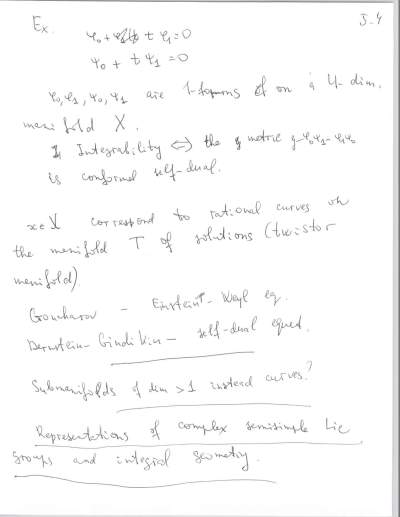 Ex. J-4
φ₀ + t φ₁ = 0
ψ₀ + t ψ₁ = 0
φ₀, φ₁, ψ₀, ψ₁ are 1-forms on a 4-dim.
manifold X.
Integrability ⇔ the metric g = φ₀ψ₁ - φ₁ψ₀
is conformal self-dual.
x∈X correspond to rational curves on
the manifold T of solutions (twistor
manifold).
Goncharov - Einstein - Weyl eq.
Bernstein - Gindikin - self-dual equat.
Submanifolds of dim > 1 instead curves?
Representations of complex semisimple Lie
groups and integral geometry.